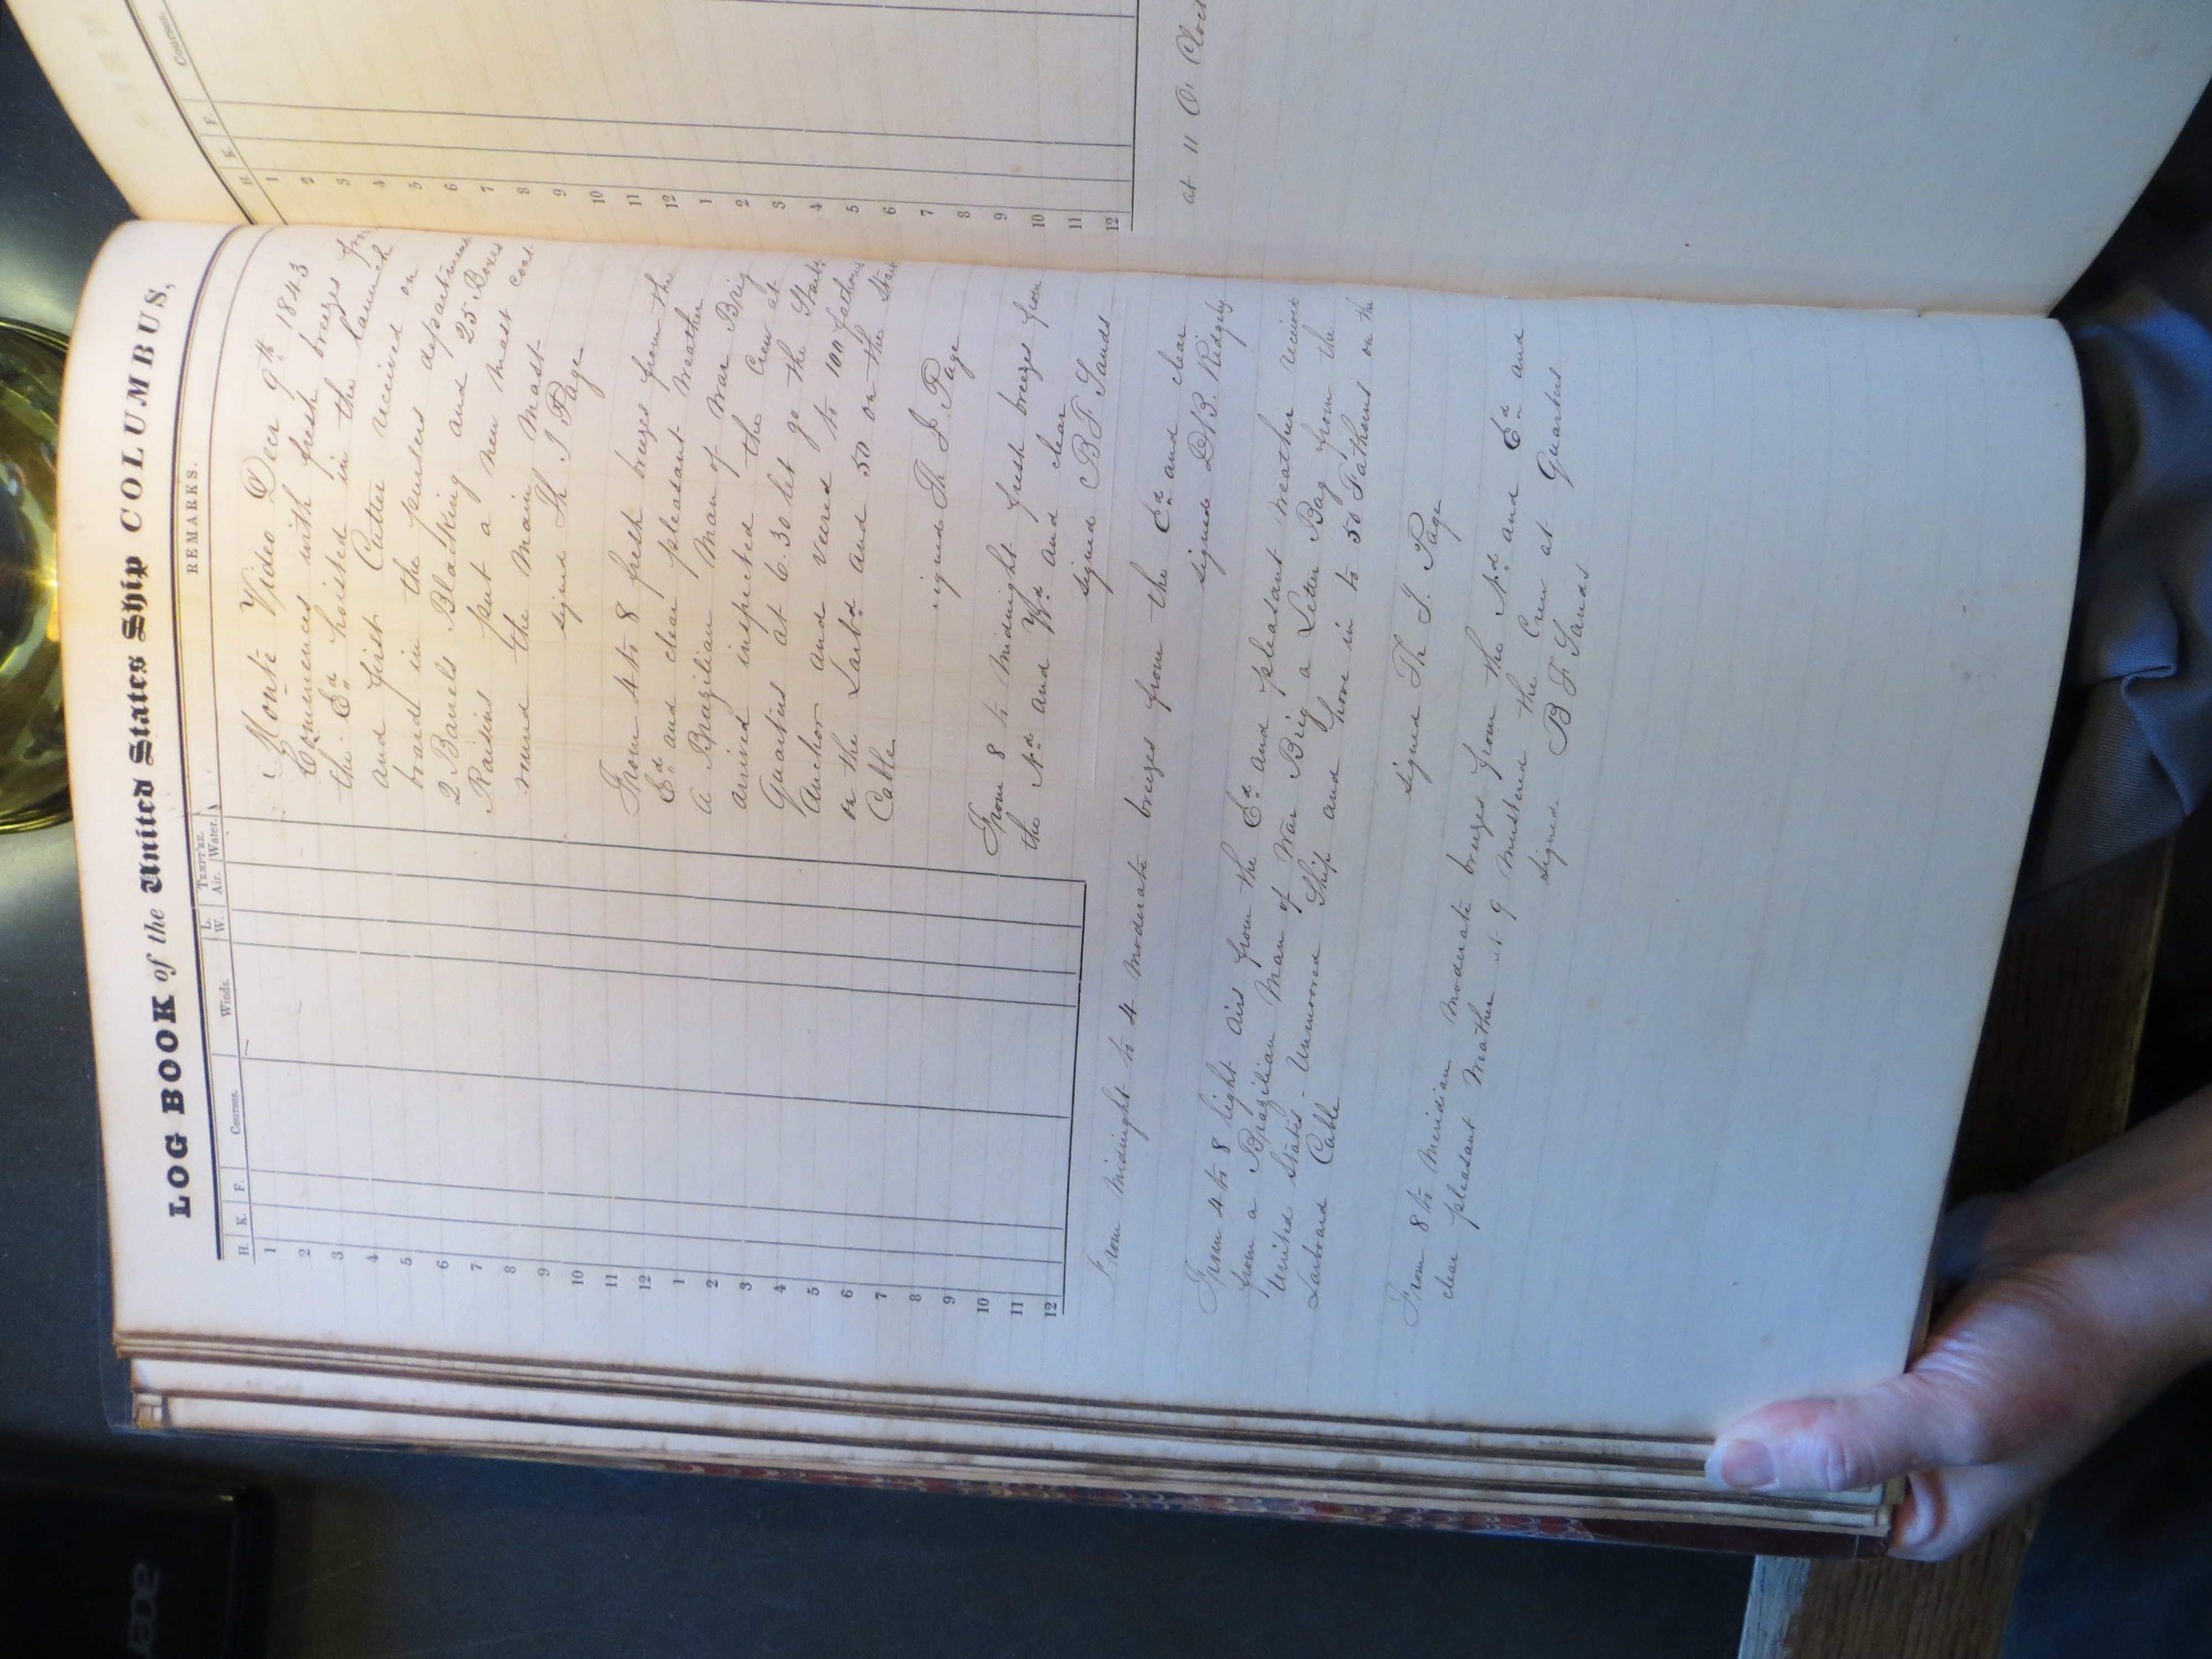 LOG BOOK of the United States Ship COLUMBUS,
H. K. F. Courses. Winds. L. W. TEMPT'RE. Air. Water. REMARKS.
1
2
3
4
5
6
7
8
9
10
11
12
1
2
3
4
5
6
7
8
9
10
11
12
Monte Video Decr 9th 1843
Commences with fresh breezes from
the Ed hoisted in the launch
and first Cutter received on
board in the pursers department
2 Barrels Blacking and 25 Boxes
Raisins put a new mast coat
round the Main Mast
signed Th J Page
From 4 to 8 fresh breezes from the
Ed and clear pleasant weather
a Brazilian Man of War Brig
arrived inspected the Crew at
Quarters at 6.30 let go the Starbd
Anchor and veered to 100 fathoms
on the Larbd and 50 on the Starbd
Cable
signed Th J. Page
From 8 to Midnight fresh breezes from
the Nd and Wd and clear
signed B F Sands
From Midnight to 4 Moderate breezes from the Ed and clear
signed D N B. Ridgely
From 4 to 8 light airs from the Ed and pleasant Weather received
from a Brazilian Man of War Brig a Letter Bag from the
United States - Unmoored Ship and hove in to 50 Fathoms on the
Larboard Cable
signed Th J. Page
From 8 to Meridian Moderate breezes from the Nd and Ed and
clear pleasant Weather at 9 Mustered the Crew at Quarters
signed B F Sands
Courses.
H. K. F.
1
2
3
4
5
6
7
8
9
10
11
12
1
2
3
4
5
6
7
8
9
10
11
12
at 11 O'Clock
acer